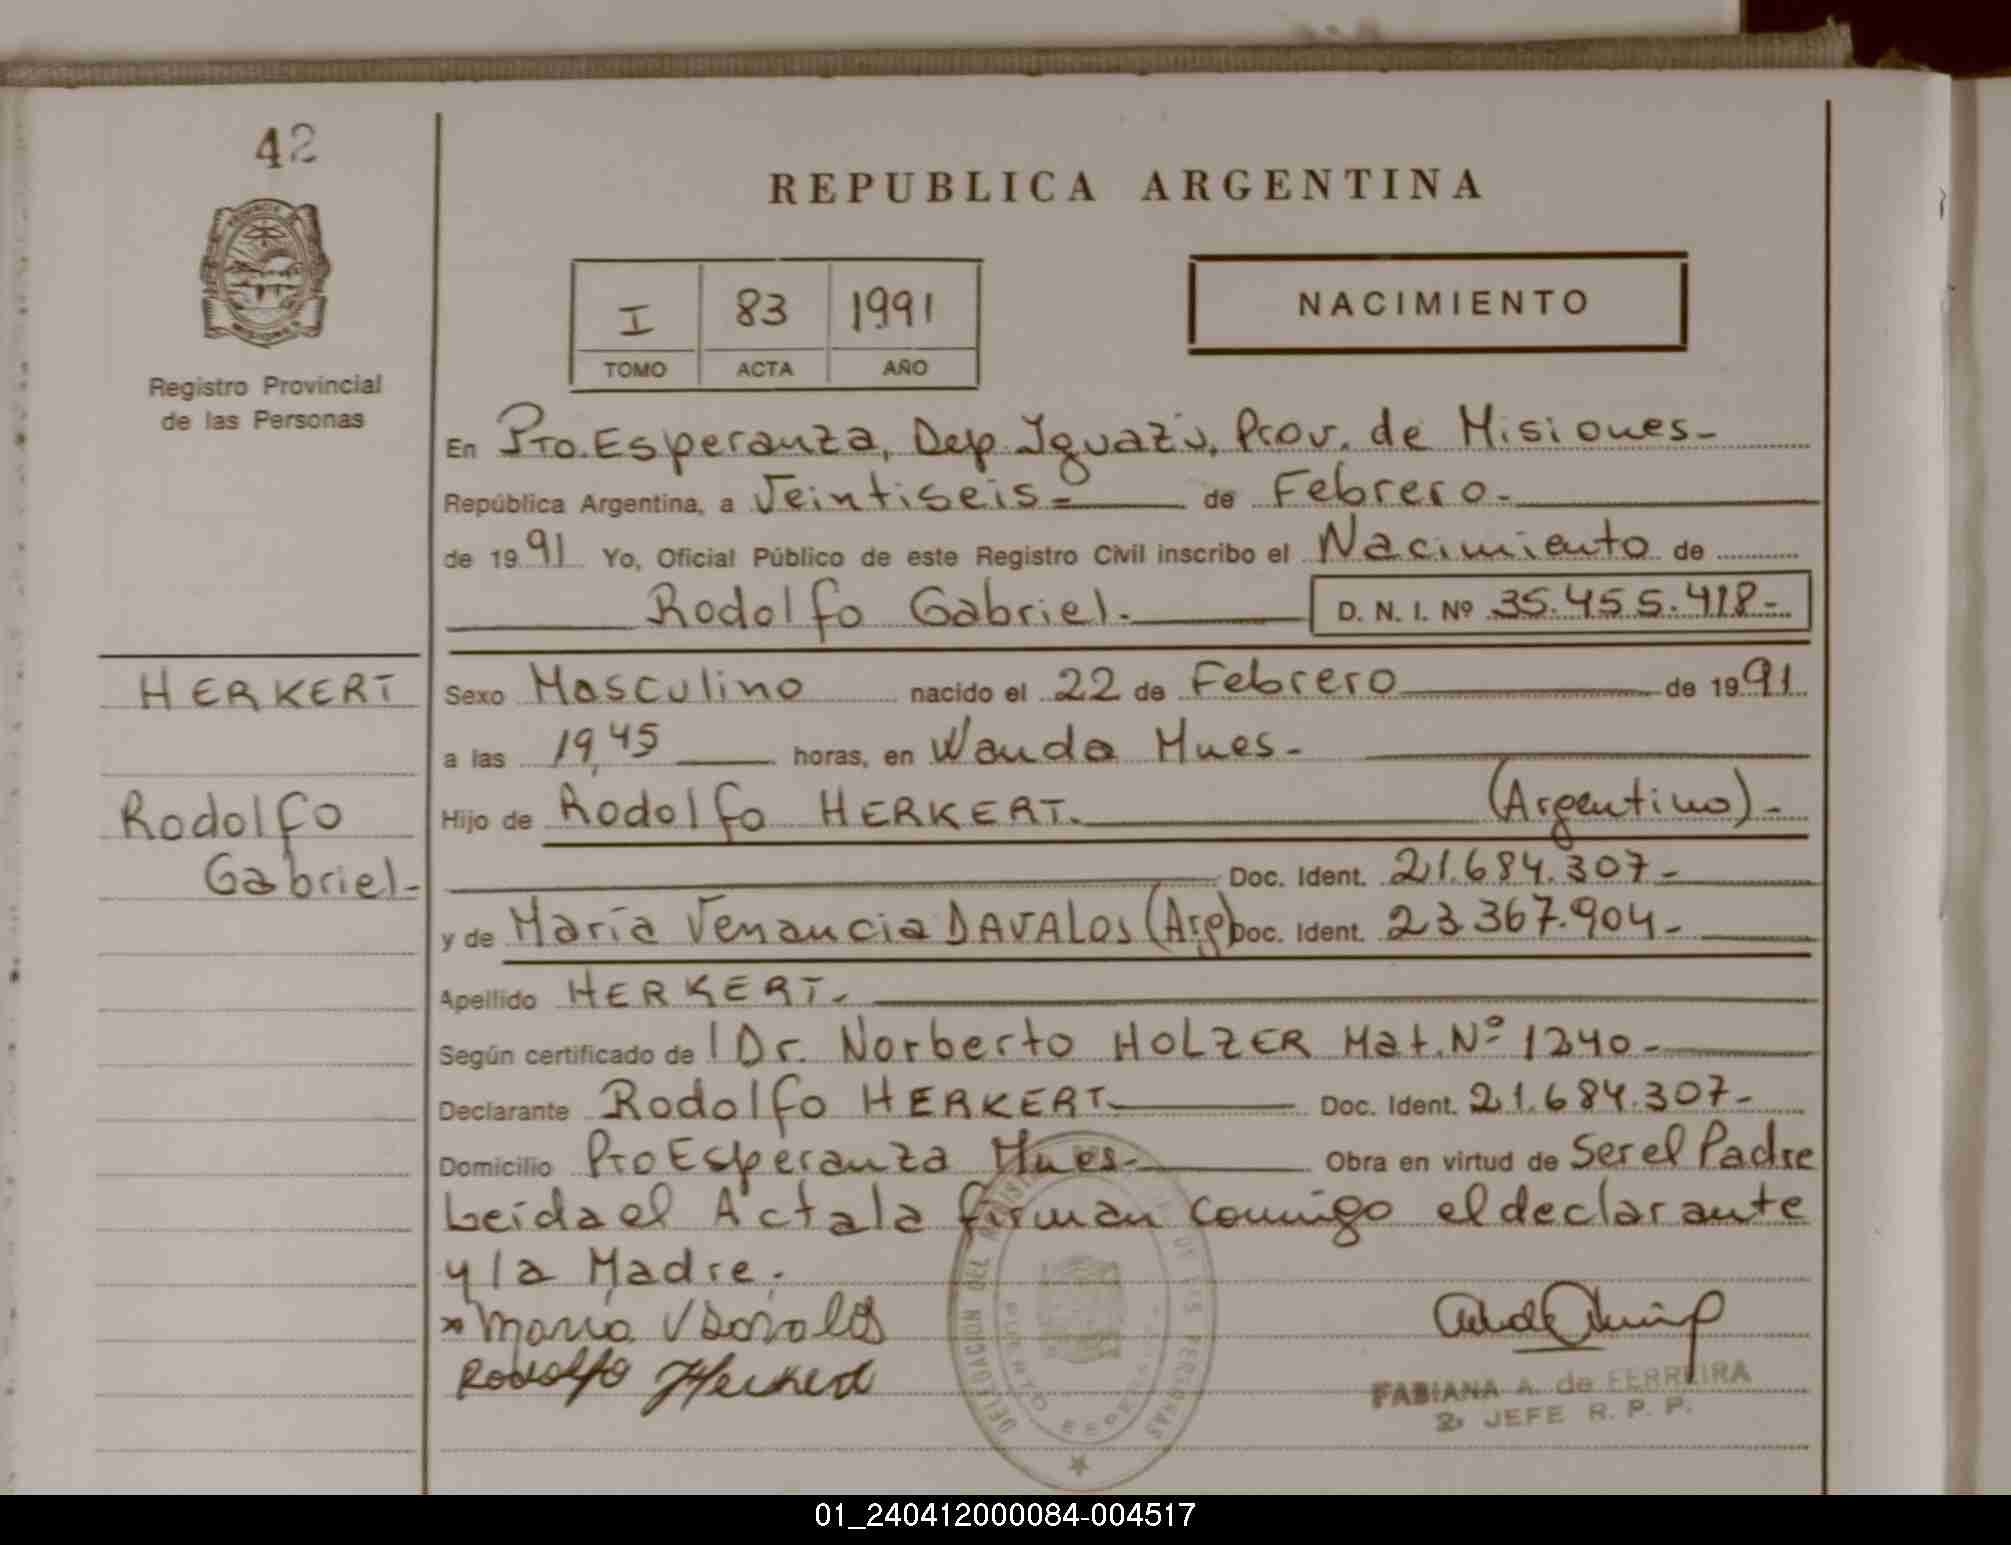 42
REPUBLICA ARGENTINA
I 83 1991
TOMO ACTA AÑO
NACIMIENTO
Registro Provincial
de las Personas
En Pto. Esperanza, Dep. Iguazú, Prov. de Misiones-
República Argentina, a Veintiseis= de Febrero-
de 1991 Yo, Oficial Público de este Registro Civil inscribo el Nacimiento de
Rodolfo Gabriel.- D. N. I. Nº 35.455.418-
HERKERT
Sexo Masculino nacido el 22 de Febrero de 1991
a las 19,45 horas, en Wanda Mnes-
Rodolfo
Gabriel-
Hijo de Rodolfo HERKERT. (Argentino)-
Doc. Ident. 21.684.307-
y de María Venancia DAVALOS (Arg) Doc. Ident. 23.367.904-
Apellido HERKERT.-
Según certificado de Dr. Norberto HOLZER Mat. Nº 1240-
Declarante Rodolfo HERKERT Doc. Ident. 21.684.307-
Domicilio Pto Esperanza Mnes- Obra en virtud de Ser el Padre
Leida el Acta la firman conmigo el declarante
y la Madre.
Maria V Davalos
Rodolfo Herkert
DELEGACION DEL REGISTRO DE LAS PERSONAS
FABIANA A. de FERREIRA
2º JEFE R. P. P.
01_240412000084-004517